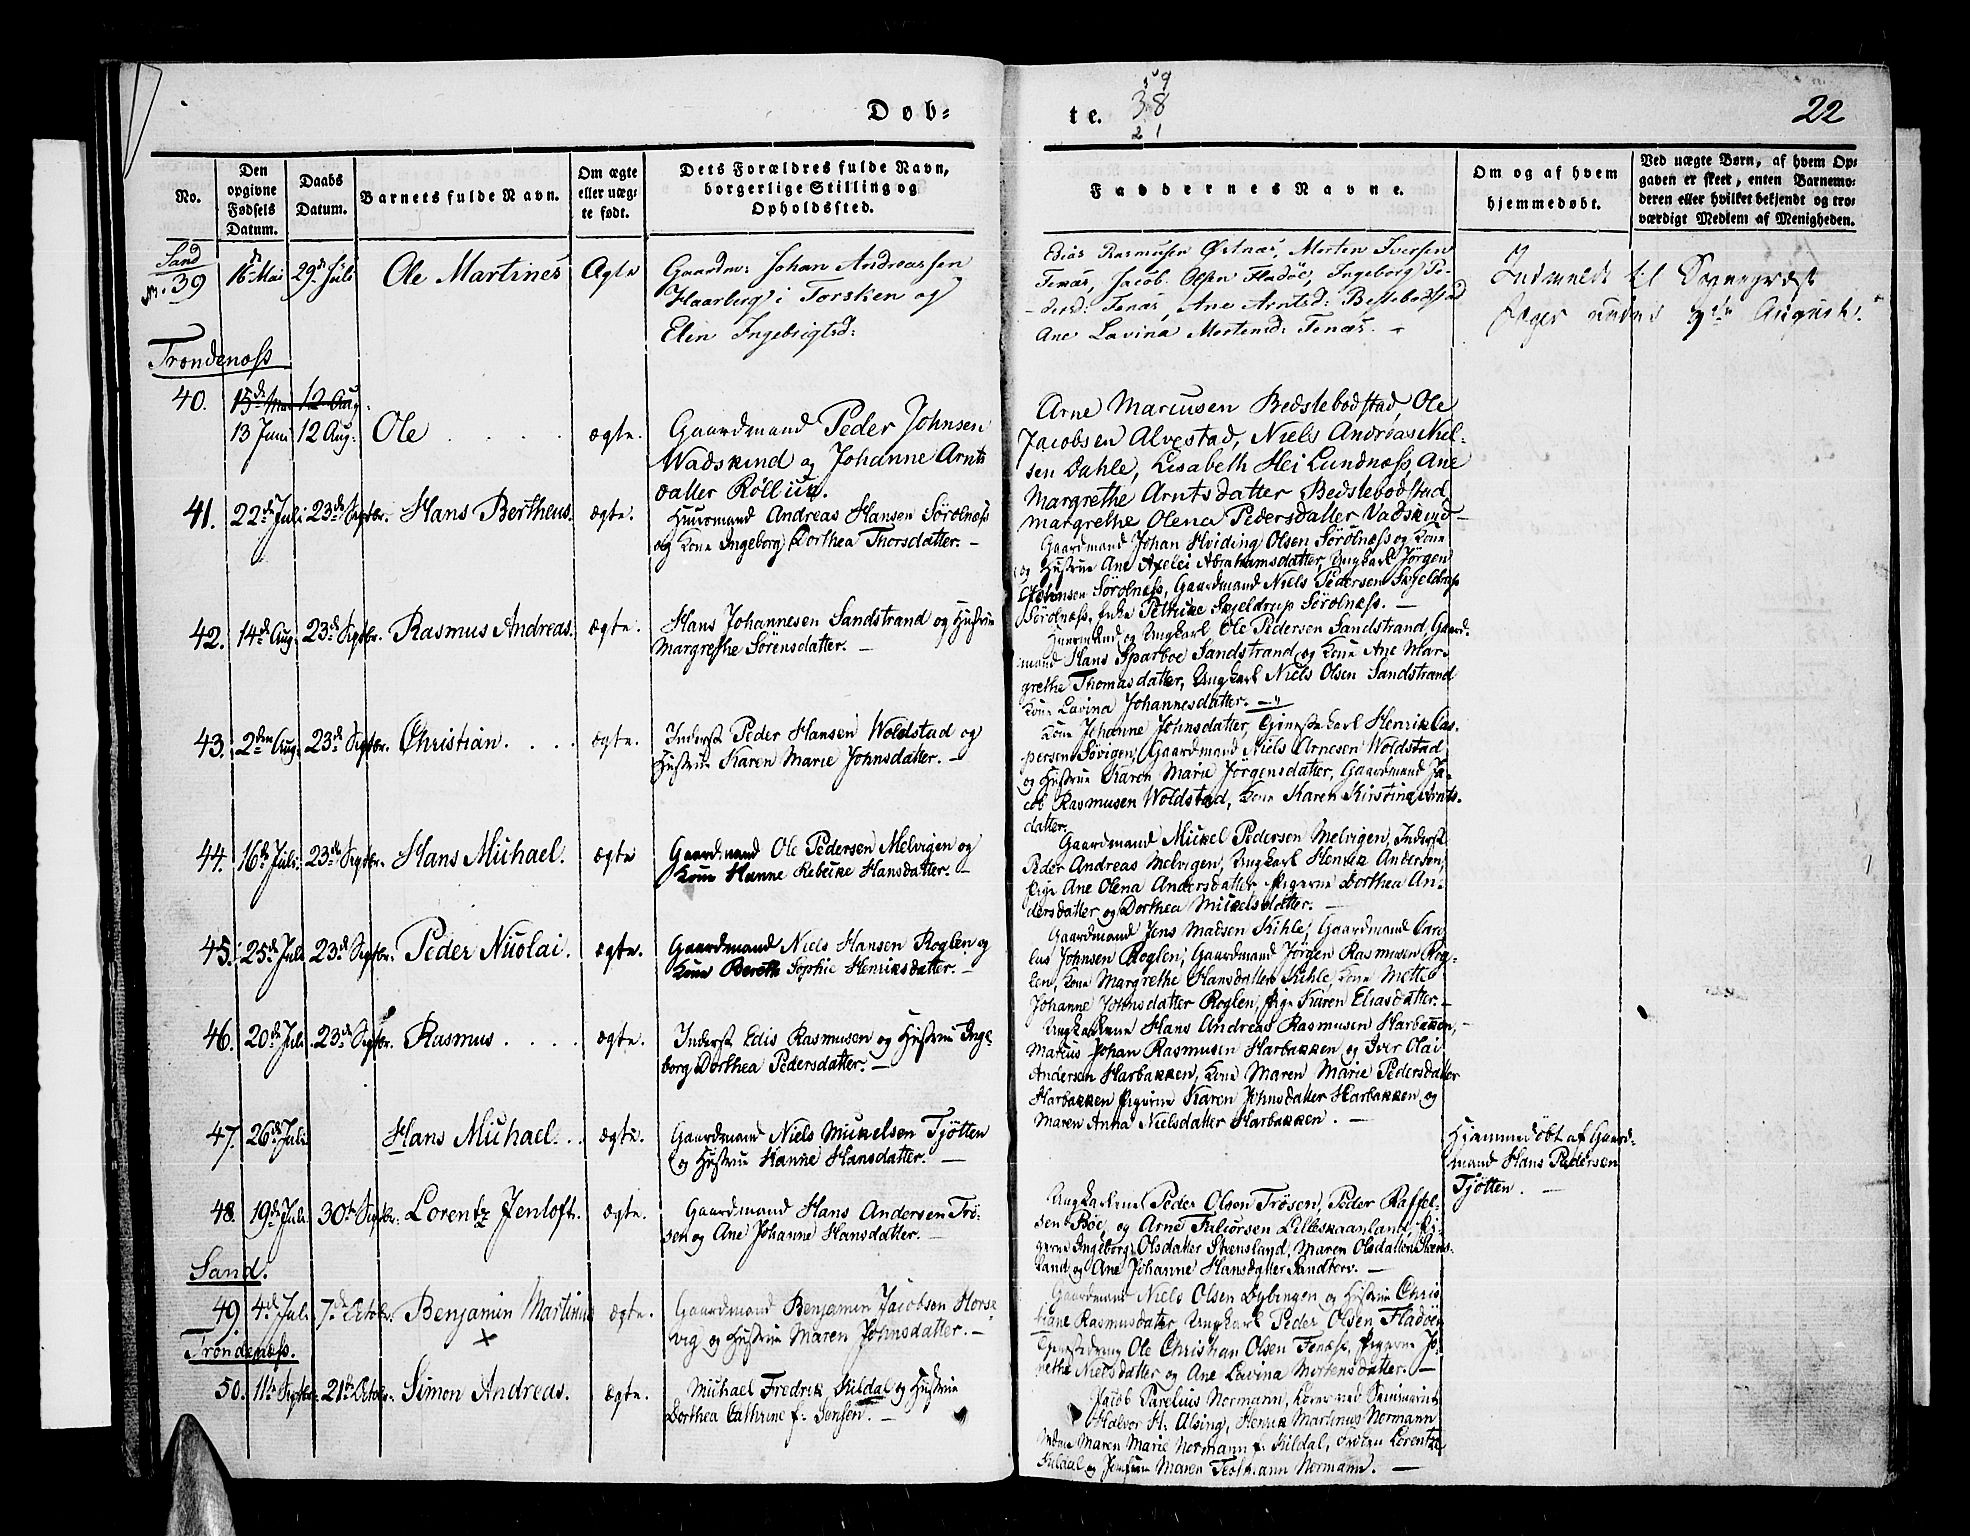 Døb-
te.
59
38
21
22
No.
Den opgivne Fødsels Datum.
Daabs Datum.
Barnets fulde Navn.
Om ægte eller uæg-te født.
Dets Forældres fulde Navn, borgerlige Stilling og Opholdssted.
Faddernes Navne.
Om og af hvem hjemmedøbt.
Ved uægte Børn, af hvem Op-gaven er skeet, enten Barnemo-deren eller hvilket bekjendt og tro-værdigt Medlem af Menigheden.
Sand
39 16de Mai 29de Juli Ole Martines Ægte Gaardm: Johan Andreassen
Haarberg i Torsken og
Elen Ingebrigtsd:
Edias Rasmusen Østnæs, Morten Iversen
Tenæs, Jacob Olsen Fladøe, Ingeborg Pe-
dersd: Tenæs, Ane Arntsd: Bessebodstad
Ane Lavina Mortensd: Tenæs. -
til Sogneprest
August.
Trondenæss
40. 15de Mai 12 Aug.
13 Juni 12 Aug: Ole ægte. Gaardmand Peder Johnsen
Wadskind og Johanne Arnts
datter Röllua.
Arne Marcusen Bedslebodstad, Ole
Jacobsen Alvestad, Niels Andreas Niel-
sen Dahle, Lisabeth Hei Lundnæss, Ane
Margrethe Arntsdatter Bedslebodstad
Margrethe Olena Pedersdatter Vadskind -
41. 22de Juli 23de Septbr. Hans Bertheus. ægte. Huusmand Andreas Hansen Sörolnæss
og Kone Ingeborg Dorthea Thorsdatter. -
Gaardmand Johan Hviding Olsen Sörolnæss og Kone
og Hustrue Ane Axelei Abrahamsdatter, Ungkarl Jørgen
Johnsen Sörolnæss, Gaardmand Niels Pedersen Skjeldrup
Sörolnæss, Enke Petrike Skjeldrup Sörolnæss. -
42. 14de Aug. 23de Septbr. Rasmus Andreas. ægte. Hans Johannesen Sandstrand og Hustrue
Margrethe Sörensdatter. -
Huusmand og Ungkarl Ole Pedersen Sandstrand, Gaard-
mand Hans Sparboe Sandstrand og Kone Ane Mar-
grethe Thomasdatter, Ungkarl Niels Olsen Sandstrand
Kone Lavina Johannesdatter. -
43. 2den Aug. 23de Septbr. Christian. ægte. Inderst Peder Hansen Woldstad og
Hustrue Karen Marie Johnsdatter. -
Kone Johanne Johnsdatter, Tjenestekarl Henrik Cas-
persen Sövigen, Gaardmand Niels Arnesen Woldstad
og Hustrue Karen Marie Jörgensdatter, Gaardmand Ja-
cob Rasmusen Woldstad, Kone Karen Kirstina Arnts-
datter.
44. 16de Juli 23de Septbr. Hans Michael. ægte Gaardmand Ole Pedersen Melvigen og
Kone Hanne Rebekke Hansdatter. -
Gaardmand Mickel Pedersen Melvigen, Inderst
Peder Andreas Melvigen, Ungkarl Henrik Andersen,
Pige Ane Olena Andersdatter, Pigerne Dorthea An-
dersdatter og Dorthea Mickelsdatter. -
45. 25de Juli 23de Septbr. Peder Nicolai. ægte. Gaardmand Niels Hansen Roglen og
Kone Bereth Sophie Henriksdatter. -
Gaardmand Jens Madsen Kihle, Gaardmand Care-
lus Johnsen Roglen, Gaardmand Jörgen Rasmusen Rog-
len, Kone Margrethe Hansdatter Kihle, Kone Mette
Johanne Johnsdatter Roglen, Pige Karen Eliasdatter. -
46. 20de Juli 23de Septbr. Rasmus ægte. Inderst Edis Rasmusen og Hustrue Inge-
borg Dorthea Pedersdatter. -
Ungkarlene Hans Andreas Rasmusen Harbakken, -
Marcus Johan Rasmusen Harbakken og Iver Olai
Andersen Harbakken, Kone Maren Marie Pedersdatter
Harbakken Pigerne Karen Johnsdatter Harbakken og
Maren Anna Nielsdatter Harbakken. -
47. 26de Juli Hans Michael. ægte. Gaardmand Niels Mickelsen Tjötten
og Hustrue Hanne Hansdatter. -
Hjemmedöbt af Gaard-
mand Hans Pedersen
Tjötten. -
48. 19de Juli 30te Septbr. Lorentz Jenloft. ægte. Gaardmand Hans Andersen Trö-
sen og Ane Johanne Hansdatter. -
Ungkarlene Peder Olsen Trösen, Peder Raffel-
sen Böe, og Arne Sillesskaanland, Pi-
gerne Ingeborg Olsdatter Stensland, Maren Olsdatter Stens-
land og Ane Johanne Hansdatter Sandtorv. -
Sand.
49. 4de Juli 7de Octobr. Benjamin Martinus ægte. Gaardmand Benjamin Jacobsen Horse-
vig og Hustrue Maren Johnsdatter. -
Gaardmand Niels Olsen Dybingen og Hustrue Chris-
tiane Rasmusdatter, Ungkarl Peder Olsen Fladöen
Ole Christian Olsen Tenæss, Pigerne
Nielsdatter og Ane Lavina Mortensdatter. -
Trondenæss.
50. 11te Septbr. 21de Octobr. Simon Andreas. ægte. Michael Fredrik Kildal og Hustrue
Dorthea Cathrine f: Jensen. -
Jacob Parelius Normann,
Halvor H. Alsing, Henrik Martinus Normann
Maren Marie Normann f: Kildal, Lorentze
Kildal og Jomfrue Maren Normann. -